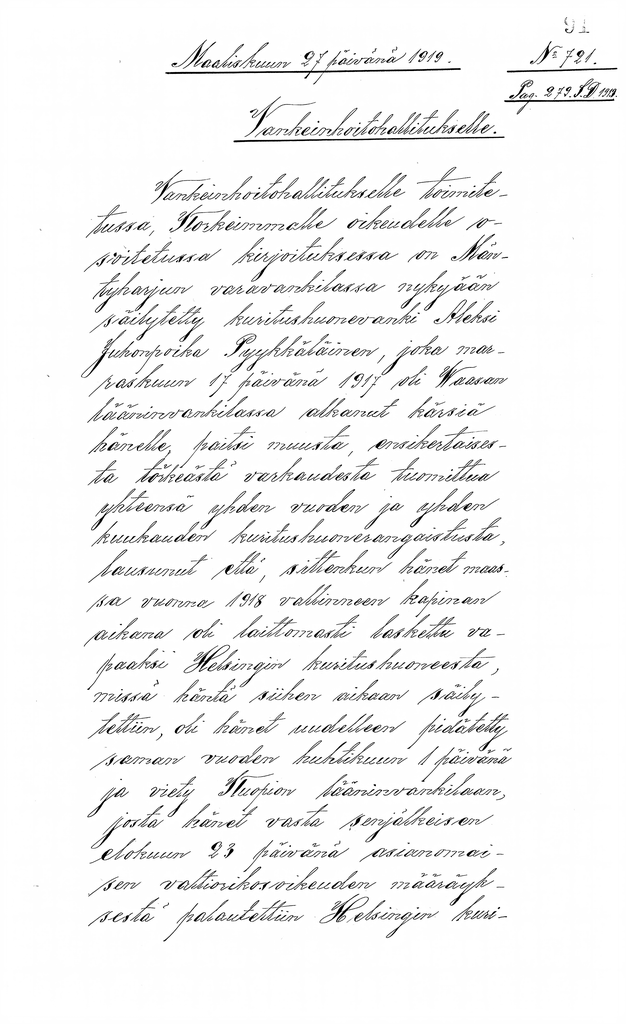 91
Maaliskuun 27 päivänä 1919.
No 721.
Pag. 279. S.D. 1918.
Vankeinhoitohallitukselle.
Vankeinhoitohallitukselle toimite-
tussa, Korkeimmalle oikeudelle o-
soitetussa kirjoituksessa on Män-
tyharjun varavankilassa nykyään
säilytetty kuritushuonevanki Aleksi
Juhonpoika Pyykkäläinen, joka mar-
raskuun 17 päivänä 1917 oli Waasan
lääninvankilassa alkanut kärsiä
hänelle, paitsi muusta, ensikertaises-
ta törkeästä varkaudesta tuomittua
yhteensä yhden vuoden ja yhden
kuukauden kuritushuonerangaistusta,
lausunut että, sittenkun hänet maas-
sa vuonna 1918 vallinneen kapinan
aikana oli laittomasti laskettu va-
paaksi Helsingin kuritushuoneesta,
missä häntä siihen aikaan säily-
tettiin, oli hänet uudelleen pidätetty
saman vuoden huhtikuun 1 päivänä
ja viety Kuopion lääninvankilaan,
josta hänet vasta senjälkeisen
elokuun 23 päivänä asianomai-
sen valtiorikosoikeuden määräyk-
sestä palautettiin Helsingin kuri-